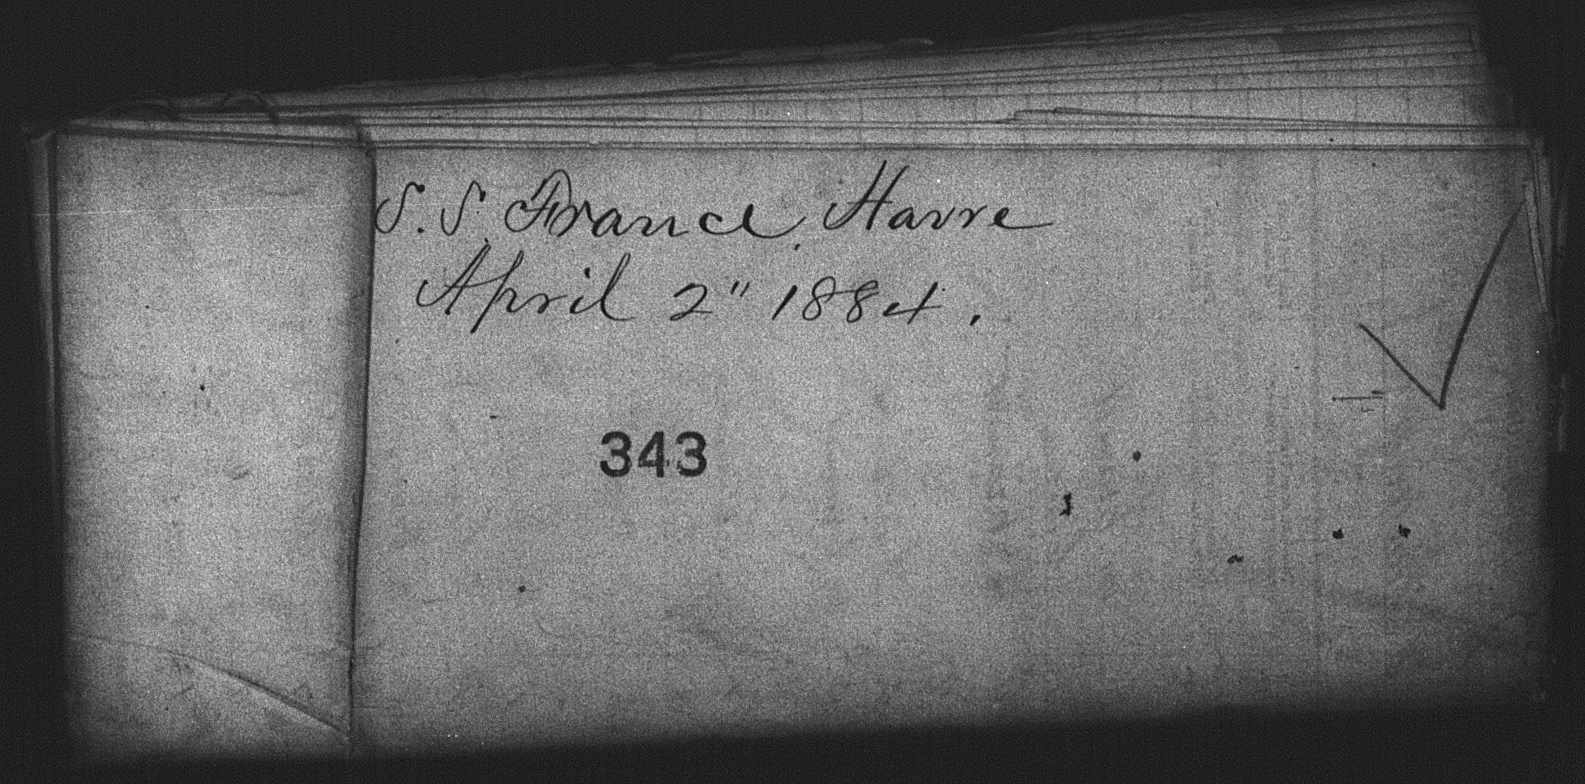 S. S. France, Havre
April 2" 1884.
343